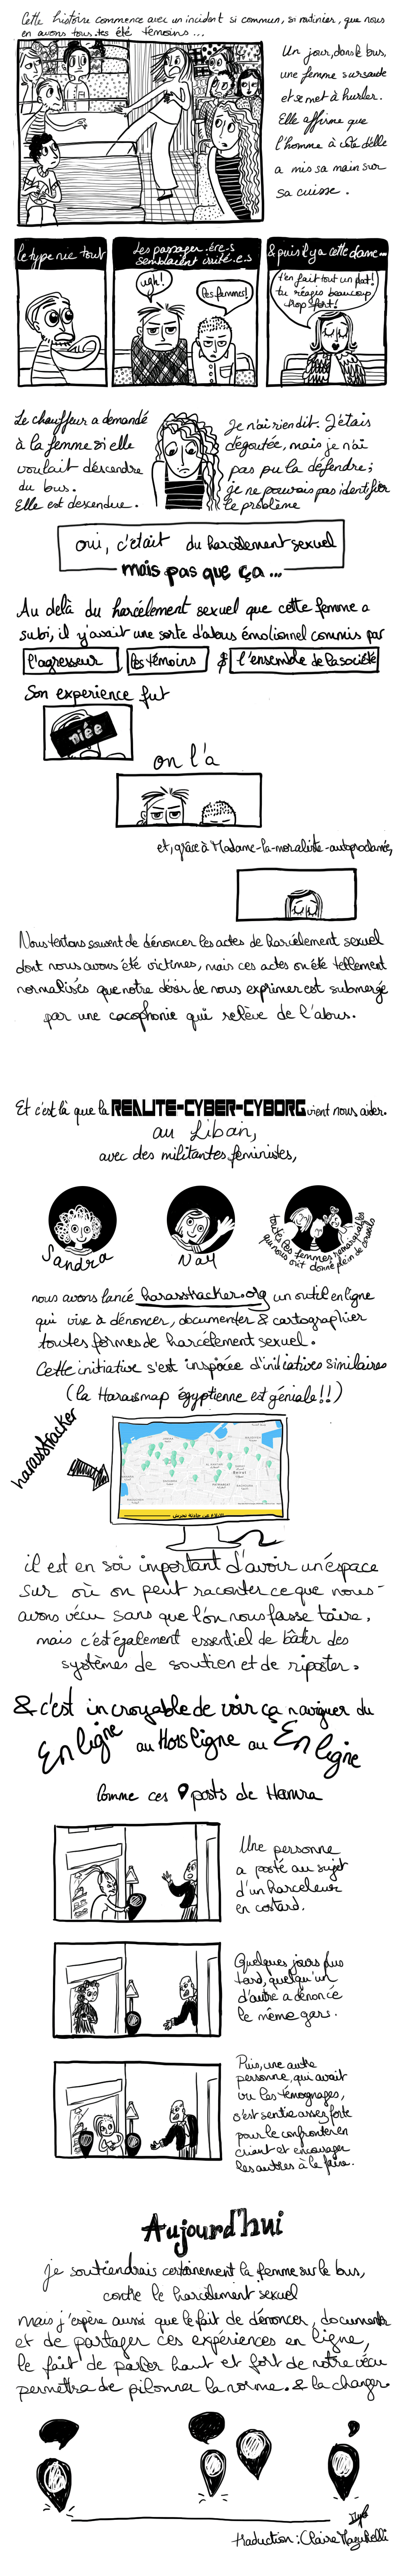 Cette histoire commence avec un incident si commun, si routinier, que nous
en avons tous.tes été témoins...
Un jour, dans le bus,
une femme sursaute
et se met à hurler.
Elle affirme que
l'homme à côté d'elle
a mis sa main sur
sa cuisse.
le type nie tout
Les passager.ère.s
semblaient irrité.e.s
ugh!
Les femmes!
& puis il y a cette dame...
t'en fait tout un plat!
tu réagis beaucoup
trop fort!
Le chauffeur a demandé
à la femme si elle
voulait descendre
du bus.
Elle est descendue.
Je n'ai rien dit. J'étais
dégoutée, mais je n'ai
pas pu la défendre;
je ne pouvais pas identifier
le problème
oui, c'était du harcèlement sexuel
mais pas que ça...
Au delà du harcèlement sexuel que cette femme a
subi, il y avait une sorte d'abus émotionnel commis par
l'agresseur, les témoins & l'ensemble de la société
Son experience fut
niée
on l'a
et, grâce à Madame-la-moraliste-autoproclamée,
Nous tentons souvent de dénoncer les actes de harcèlement sexuel
dont nous avons été victimes, mais ces actes on été tellement
normalisés que notre désir de nous exprimer est submergé
par une cacophonie qui relève de l'abus.
Et c'est là que la REALITE-CYBER-CYBORG vient nous aider.
au Liban,
avec des militantes féministes,
Sandra
Nay
toutes les femmes remarquables
qui nous ont donné plein de conseils
nous avons lancé harasstracker.org un outil en ligne
qui vise à dénoncer, documenter & cartographier
toutes formes de harcèlement sexuel.
Cette initiative s'est inspirée d'initiatives similaires
(la Harassmap égyptienne est géniale!!)
harasstracker
il est en soi important d'avoir un espace
sur où on peut raconter ce que nous-
avons vécu sans que l'on nous fasse taire,
mais c'est également essentiel de bâtir des
systèmes de soutien et de riposter.
& c'est incroyable de voir ça naviguer du
En ligne au Hors ligne au En ligne
Comme ces posts de Hamra
Une personne
a posté au sujet
d'un harceleur
en costard.
Quelques jours plus
tard, quelqu'un
d'autre a dénoncé
le même gars.
Puis, une autre
personne, qui avait
vu les témoignages,
s'est sentie assez forte
pour le confronter en
criant et encourager
les autres à le faire.
Aujourd'hui
je soutiendrais certainement la femme sur le bus,
contre le harcèlement sexuel
mais j'espère aussi que le fait de dénoncer, documenter
et de partager ces expériences en ligne,
le fait de parler haut et fort de notre vécu
permettra de pilonner la norme. & la changer.
traduction: Claire Mazuhelli